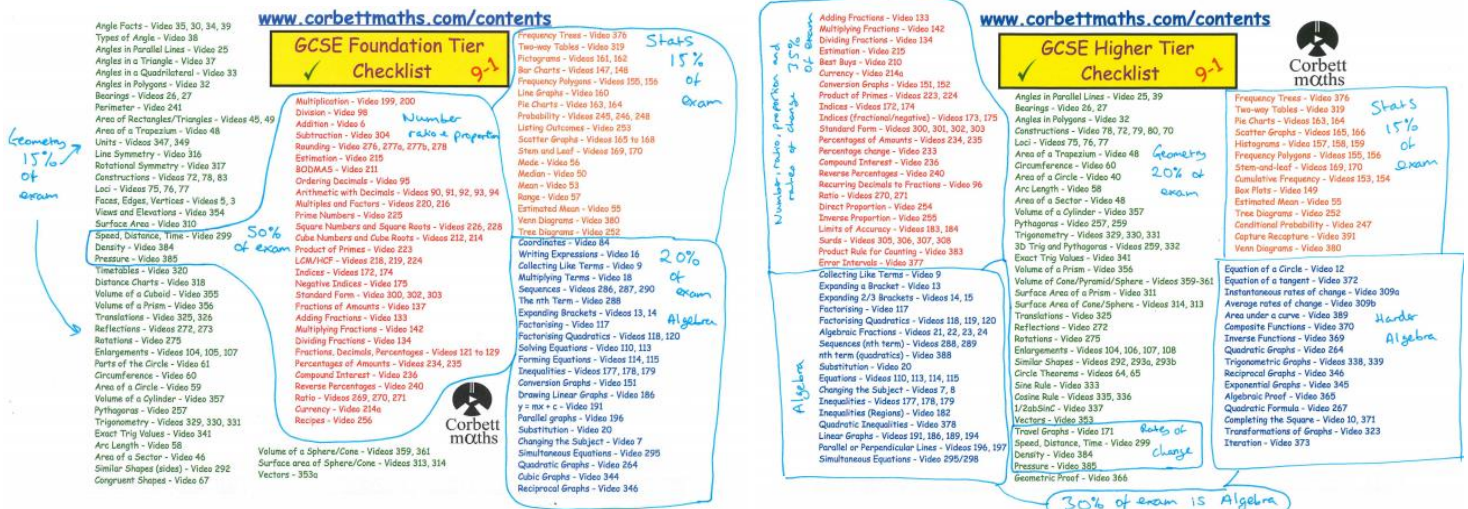 www.corbettmaths.com/contents
GCSE Foundation Tier
Checklist
9-1
Angle Facts - Video 35, 30, 34, 39
Types of Angle - Video 38
Angles in Parallel Lines - Video 25
Angles in a Triangle - Video 37
Angles in a Quadrilateral - Video 33
Angles in Polygons - Video 32
Bearings - Videos 26, 27
Perimeter - Video 241
Area of Rectangles/Triangles - Videos 45, 49
Area of a Trapezium - Video 48
Units - Videos 347, 349
Line Symmetry - Video 316
Rotational Symmetry - Video 317
Constructions - Videos 72, 78, 83
Loci - Videos 75, 76, 77
Faces, Edges, Vertices - Videos 5, 3
Views and Elevations - Video 354
Surface Area - Video 310
Speed, Distance, Time - Video 299
Density - Video 384
Pressure - Video 385
Timetables - Video 320
Distance Charts - Video 318
Volume of a Cuboid - Video 355
Volume of a Prism - Video 356
Translations - Video 325, 326
Reflections - Video 272, 273
Rotations - Video 275
Enlargements - Videos 104, 105, 107
Parts of the Circle - Video 61
Circumference - Video 60
Area of a Circle - Video 59
Volume of a Cylinder - Video 357
Pythagoras - Video 257
Trigonometry - Videos 329, 330, 331
Exact Trig Values - Video 341
Arc Length - Video 58
Area of a Sector - Video 46
Similar Shapes (sides) - Video 292
Congruent Shapes - Video 67
Geometry
15%
of
exam
Multiplication - Video 199, 200
Division - Video 98
Addition - Video 6
Subtraction - Video 304
Rounding - Video 276, 277a, 277b, 278
Estimation - Video 215
BODMAS - Video 211
Ordering Decimals - Video 95
Arithmetic with Decimals - Videos 90, 91, 92, 93, 94
Multiples and Factors - Videos 220, 216
Prime Numbers - Video 225
Square Numbers and Square Roots - Videos 226, 228
Cube Numbers and Cube Roots - Videos 212, 214
Product of Primes - Video 223
LCM/HCF - Videos 218, 219, 224
Indices - Videos 172, 174
Negative Indices - Video 175
Standard Form - Videos 300, 302, 303
Fractions of Amounts - Video 137
Adding Fractions - Video 133
Multiplying Fractions - Video 142
Dividing Fractions - Video 134
Fractions, Decimals, Percentages - Videos 121 to 129
Percentages of Amounts - Videos 234, 235
Compound Interest - Video 236
Reverse Percentages - Video 240
Ratio - Videos 269, 270, 271
Currency - Video 214a
Recipes - Video 256
Number
ratio & proportion
50%
of exam
Volume of a Sphere/Cone - Videos 359, 361
Surface area of Sphere/Cone - Videos 313, 314
Vectors - 353a
Corbett
maths
Frequency Trees - Video 376
Two-way Tables - Video 319
Pictograms - Videos 161, 162
Bar Charts - Videos 147, 148
Frequency Polygons - Videos 155, 156
Line Graphs - Video 160
Pie Charts - Videos 163, 164
Probability - Videos 245, 246, 248
Listing Outcomes - Video 253
Scatter Graphs - Videos 165 to 168
Stem and Leaf - Videos 169, 170
Mode - Video 56
Median - Video 50
Mean - Video 53
Range - Video 57
Estimated Mean - Video 55
Venn Diagrams - Video 380
Tree Diagrams - Video 252
Stats
15%
of
exam
Coordinates - Video 84
Writing Expressions - Video 16
Collecting Like Terms - Video 9
Multiplying Terms - Video 18
Sequences - Videos 286, 287, 290
The nth Term - Video 288
Expanding Brackets - Videos 13, 14
Factorising - Video 117
Factorising Quadratics - Videos 118, 120
Solving Equations - Videos 110, 113
Forming Equations - Videos 114, 115
Inequalities - Videos 177, 178, 179
Conversion Graphs - Video 151
Drawing Linear Graphs - Video 186
y = mx + c - Video 191
Parallel graphs - Video 196
Substitution - Video 20
Changing the Subject - Video 7
Simultaneous Equations - Video 295
Quadratic Graphs - Video 264
Cubic Graphs - Video 344
Reciprocal Graphs - Video 346
20%
of
exam
Algebra
www.corbettmaths.com/contents
GCSE Higher Tier
Checklist
9-1
Corbett
maths
Number, ratio, proportion and
rates of change 35%
of exam
Adding Fractions - Video 133
Multiplying Fractions - Video 142
Dividing Fractions - Video 134
Estimation - Video 215
Best Buys - Video 210
Currency - Video 214a
Conversion Graphs - Video 151, 152
Product of Primes - Videos 223, 224
Indices - Videos 172, 174
Indices (fractional/negative) - Videos 173, 175
Standard Form - Videos 300, 301, 302, 303
Percentages of Amounts - Videos 234, 235
Percentage change - Video 233
Compound Interest - Video 236
Reverse Percentages - Video 240
Recurring Decimals to Fractions - Video 96
Ratio - Videos 270, 271
Direct Proportion - Video 254
Inverse Proportion - Video 255
Limits of Accuracy - Videos 183, 184
Surds - Videos 305, 306, 307, 308
Product Rule for Counting - Video 383
Error Intervals - Video 377
Collecting Like Terms - Video 9
Expanding a Bracket - Video 13
Expanding 2/3 Brackets - Videos 14, 15
Factorising - Video 117
Factorising Quadratics - Videos 118, 119, 120
Algebraic Fractions - Videos 21, 22, 23, 24
Sequences (nth term) - Videos 288, 289
nth term (quadratics) - Video 388
Substitution - Video 20
Equations - Videos 110, 113, 114, 115
Changing the Subject - Videos 7, 8
Inequalities - Videos 177, 178, 179
Inequalities (Regions) - Video 182
Quadratic Inequalities - Video 378
Linear Graphs - Videos 191, 186, 189, 194
Parallel or Perpendicular Lines - Videos 196, 197
Simultaneous Equations - Videos 295/298
Algebra
Angles in Parallel Lines - Video 25, 39
Bearings - Video 26, 27
Angles in Polygons - Video 32
Constructions - Videos 78, 72, 79, 80, 70
Loci - Videos 75, 76, 77
Area of a Trapezium - Video 48
Circumference - Video 60
Area of a Circle - Video 40
Arc Length - Video 58
Area of a Sector - Video 48
Volume of a Cylinder - Video 357
Pythagoras - Video 257, 259
Trigonometry - Videos 329, 330, 331
3D Trig and Pythagoras - Videos 259, 332
Exact Trig Values - Video 341
Volume of a Prism - Video 356
Volume of Cone/Pyramid/Sphere - Videos 359-361
Surface Area of a Prism - Video 311
Surface Area of Cone/Sphere - Videos 314, 313
Translations - Video 325
Reflections - Video 272
Rotations - Video 275
Enlargements - Videos 104, 106, 107, 108
Similar Shapes - Videos 292, 293a, 293b
Circle Theorems - Videos 64, 65
Sine Rule - Video 333
Cosine Rule - Videos 335, 336
1/2abSinC - Video 337
Vectors - Video 353
Travel Graphs - Video 171
Speed, Distance, Time - Video 299
Density - Video 384
Pressure - Video 385
Geometric Proof - Video 366
Geometry
20% of
exam
Rates of
change
Frequency Trees - Video 376
Two-way Tables - Video 319
Pie Charts - Videos 163, 164
Scatter Graphs - Videos 165, 166
Histograms - Videos 157, 158, 159
Frequency Polygons - Videos 155, 156
Stem-and-leaf - Videos 169, 170
Cumulative Frequency - Videos 153, 154
Box Plots - Video 149
Estimated Mean - Video 55
Tree Diagrams - Video 252
Conditional Probability - Video 247
Capture Recapture - Video 391
Venn Diagrams - Video 380
Stats
15%
of
exam
Equation of a Circle - Video 12
Equation of a tangent - Video 372
Instantaneous rates of change - Video 309a
Average rates of change - Video 309b
Area under a curve - Video 389
Composite Functions - Video 370
Inverse Functions - Video 369
Quadratic Graphs - Video 264
Trigonometric Graphs - Videos 338, 339
Reciprocal Graphs - Video 346
Exponential Graphs - Video 345
Algebraic Proof - Video 365
Quadratic Formula - Video 267
Completing the Square - Video 10, 371
Transformations of Graphs - Video 323
Iteration - Video 373
Harder
Algebra
30% of exam is Algebra